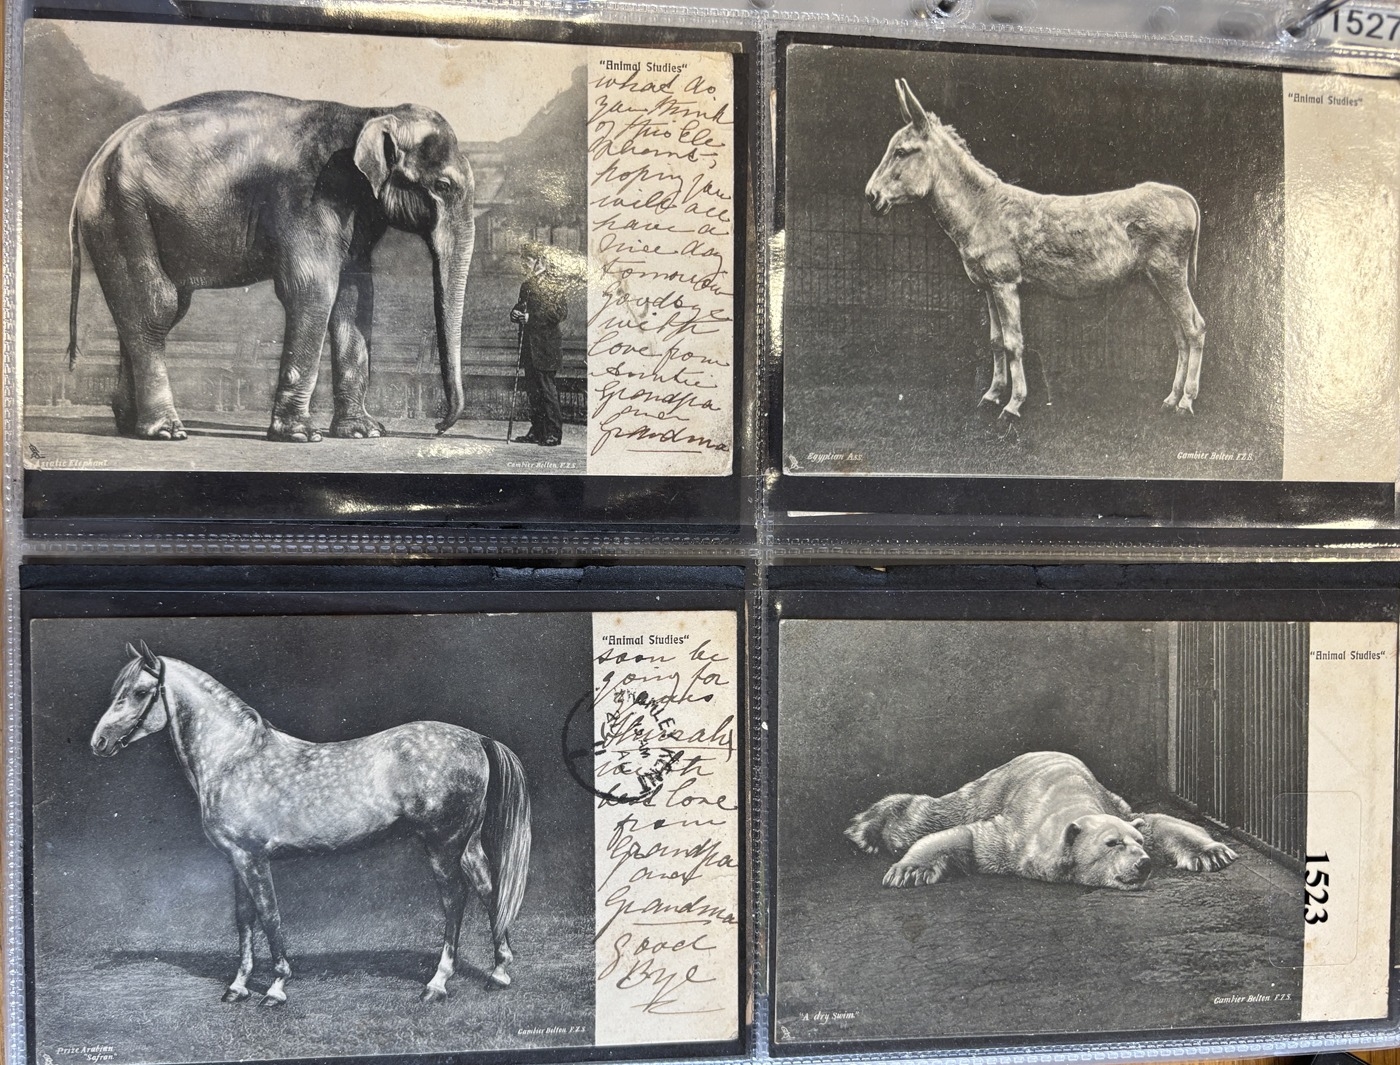 1527
"Animal Studies"
what do
you think
of this Ele
phant,
hoping you
will all
have a
nice day
tomorrow
goodbye
with
love from
Auntie
Grandpa
and
Grandma
Asiatic Elephant
Gambier Bolton F.Z.S.
"Animal Studies"
Egyptian Ass.
Gambier Bolton F.Z.S.
"Animal Studies"
soon be
going for
with
best love
from
Grandpa
and
Grandma
good
Bye
KENT
Prize Arabian
"Safran"
Gambier Bolton F.Z.S.
"Animal Studies"
1523
"A dry Swim."
Gambier Bolton F.Z.S.